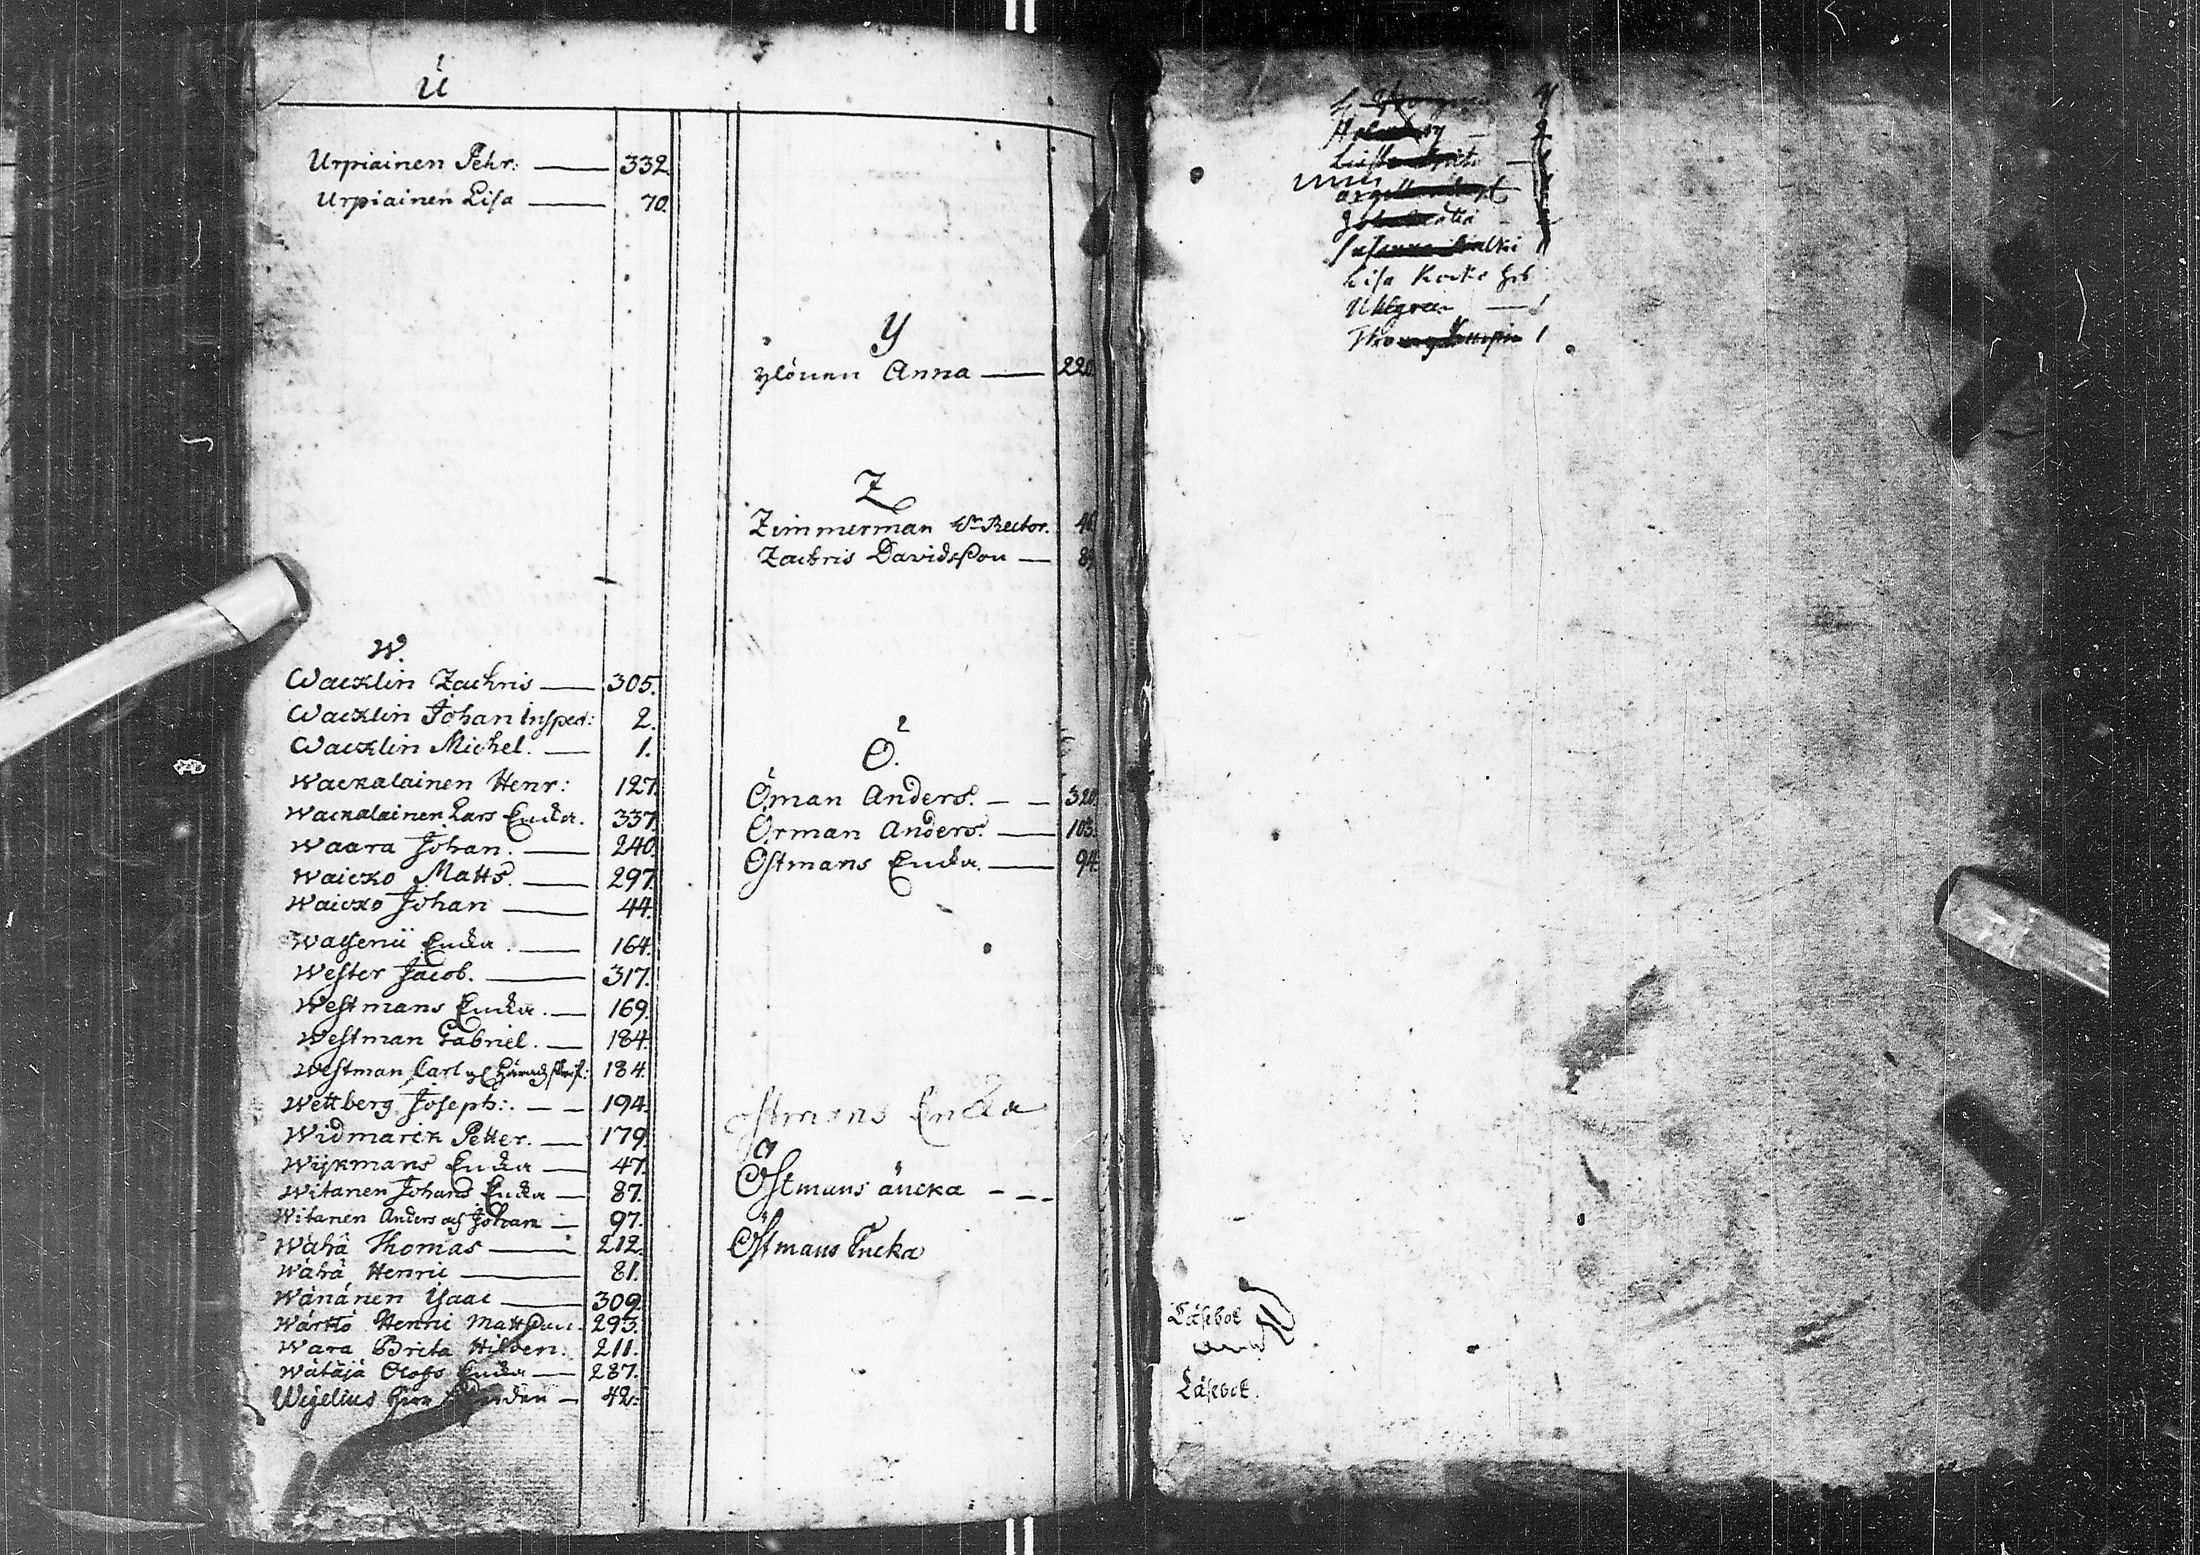 U
Urpiainen Pehr: 332
Urpiainen Lisa 70.
W.
Wacklin Zachris 305.
Wacklin Johan Inspect: 2.
Wacklin Michel. 1.
Wackalainen Henr: 127.
Wackalainen Lars Encka. 337.
Waara Johan. 240.
Waicko Matts. 297.
Waicko Johan 44.
Encka. 164.
Wester Jacob. 317.
Westmans Encka. 169.
Westman Gabriel. 184.
Westman Carl 184.
Wettberg Joseph:. 194.
Widmarck Petter. 179.
Wijkmans Encka 47.
Witanen Johans Encka 87.
Witanen Anders och Johan 97.
Wähä Thomas 212.
Wähä Henric 81.
Wänänen Isaac 309.
Wärttö Henric Mattsson. 293.
Wara Brita Hilden. 211.
Wätäjä Olofs Encka 287.
Wegelius 42.
Y
Ylönen Anna 220.
Z
Zimmerman Rector. 46
Zachris Davidsson 8
Ö.
Öman Anders. 320.
Örman Anders. 103.
Östmans Encka. 94.
Ostmans Encka
Östmans äncka
Östmans Encka
Lisa
Uhlgren 1
1
Läsebok
Läsebok.